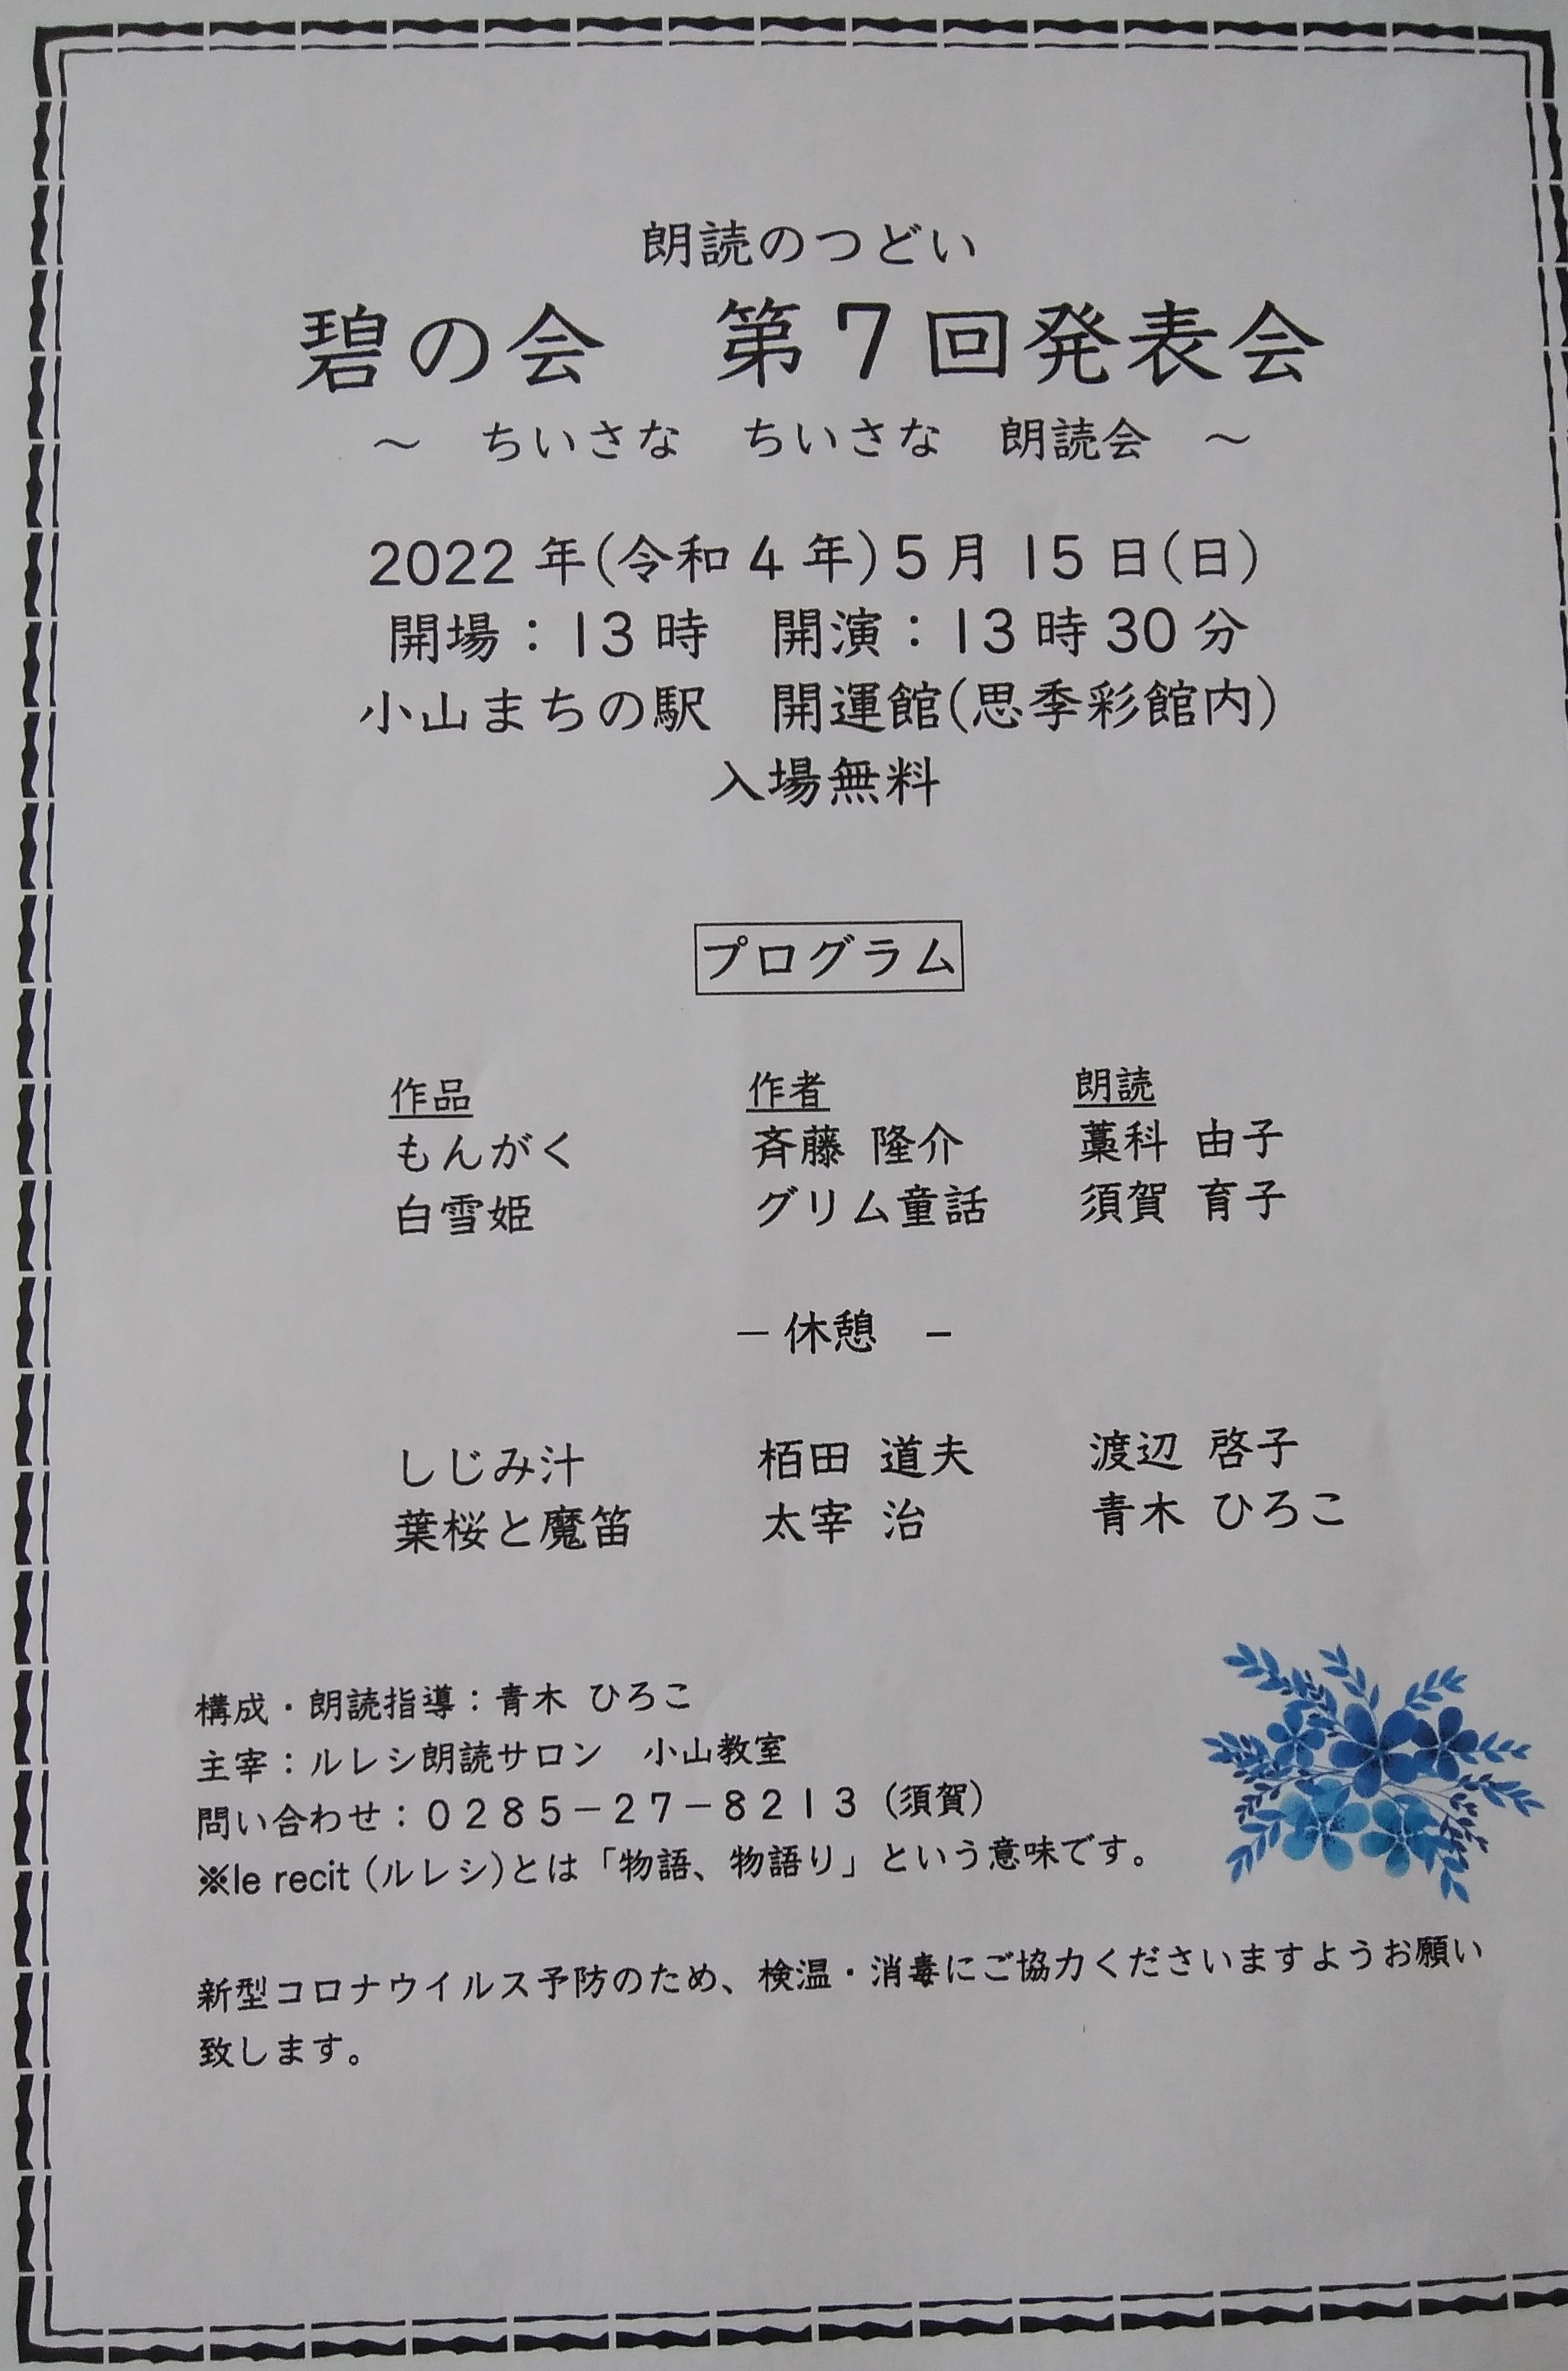 朗読のつどい
碧の会　第7回発表会
～　ちいさな　ちいさな　朗読会　～
2022年(令和4年)5月15日(日)
開場：13時　開演：13時30分
小山まちの駅　開運館(思季彩館内)
入場無料
プログラム
作品　作者　朗読
もんがく　斉藤 隆介　藁科 由子
白雪姫　グリム童話　須賀 育子
－休憩　－
しじみ汁　栢田 道夫　渡辺 啓子
葉桜と魔笛　太宰 治　青木 ひろこ
構成・朗読指導：青木 ひろこ
主宰：ルレシ朗読サロン　小山教室
問い合わせ：０２８５－２７－８２１３（須賀）
※le recit (ルレシ)とは「物語、物語り」という意味です。
新型コロナウイルス予防のため、検温・消毒にご協力くださいますようお願い
致します。